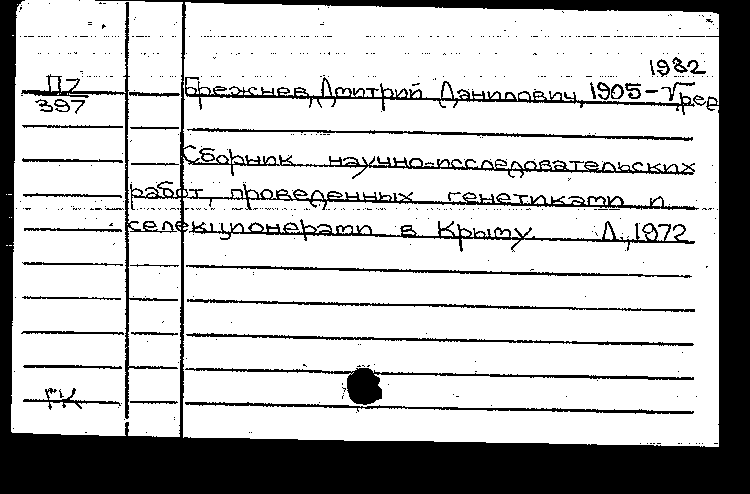 1982
П7
397
Брежнев, Дмитрий Данилович, 1905- ред.
Сборник научно-исследовательских
работ, проведенных генетиками и
селекционерами в Крыму Л., 1972
ГК